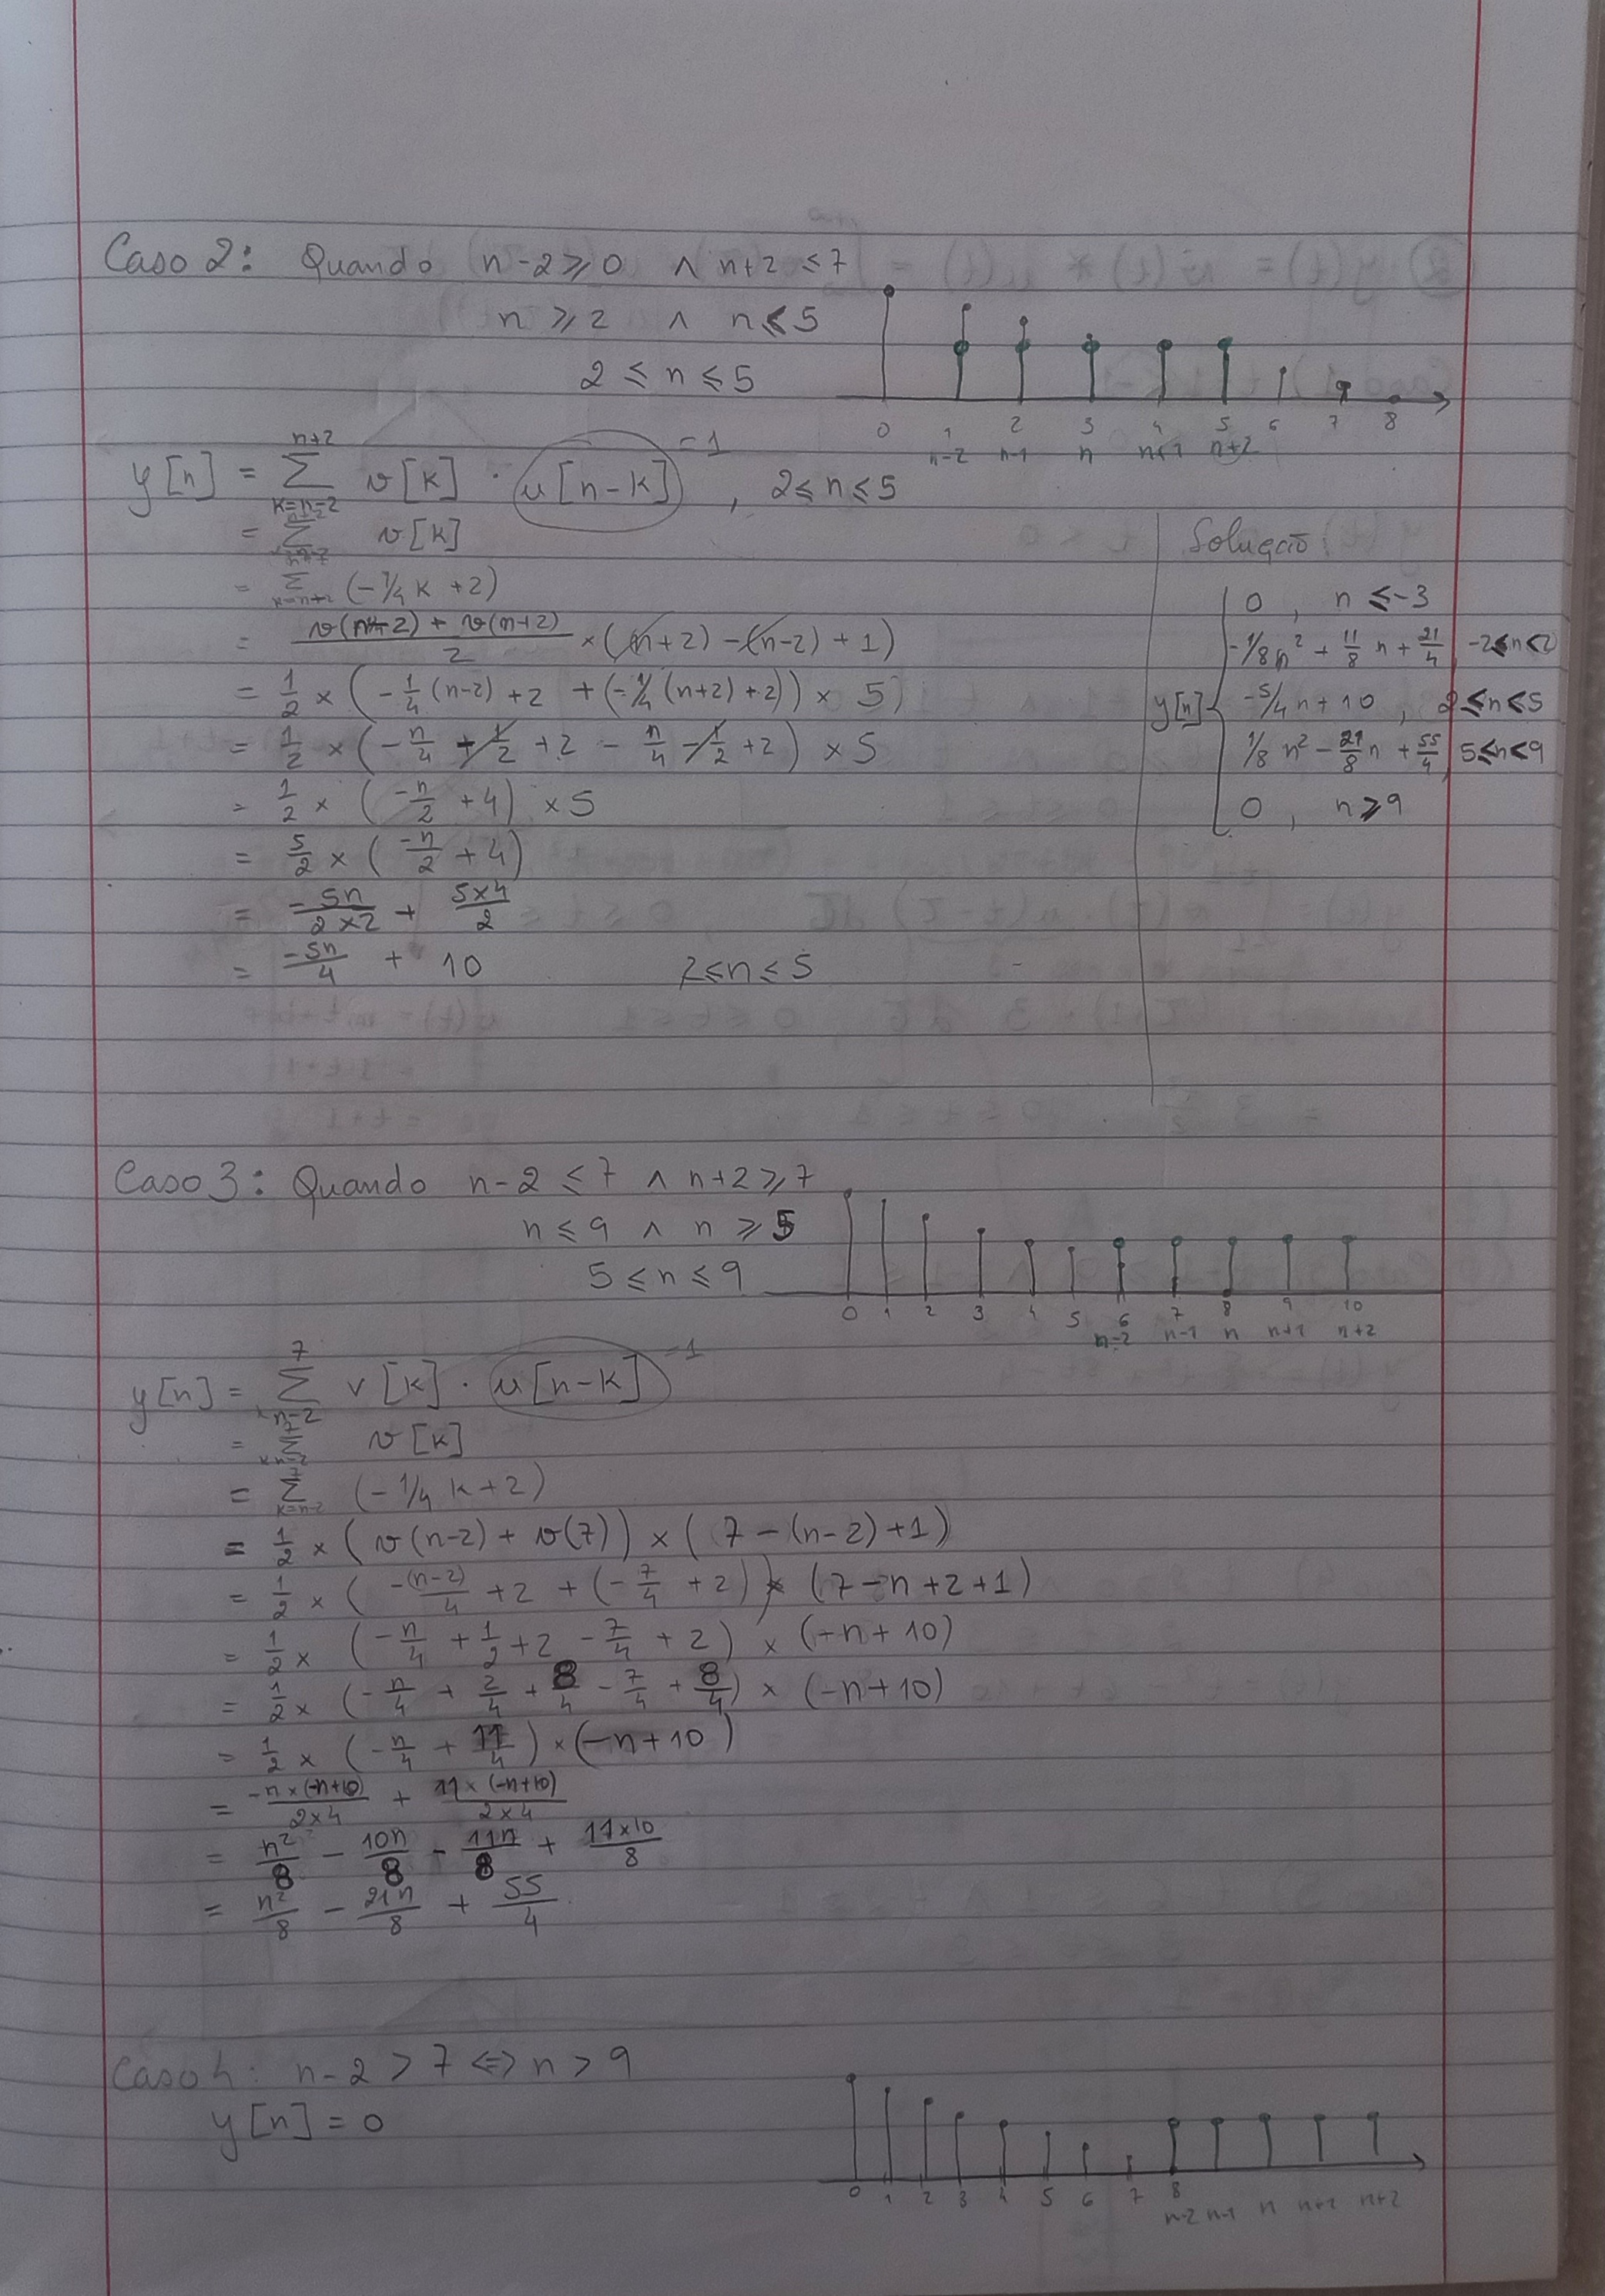 Caso 2: Quando n-2 ≥ 0 ∧ n+2 ≤ 7
n ≥ 2 ∧ n ≤ 5
2 ≤ n ≤ 5
0 1 2 3 4 5 6 7 8
n-2 n-1 n n+1 n+2
y[n] = Σ_{k=n-2}^{n+2} v[k] · u[n-k] =1 , 2 ≤ n ≤ 5
= Σ v[k]
= Σ (-1/4 k + 2)
= (v(n-2) + v(n+2))/2 × ((n+2) - (n-2) + 1)
= 1/2 × (-1/4 (n-2) + 2 + (-1/4 (n+2) + 2)) × 5
= 1/2 × (-n/4 + 1/2 + 2 - n/4 - 1/2 + 2) × 5
= 1/2 × (-n/2 + 4) × 5
= 5/2 × (-n/2 + 4)
= -5n/(2×2) + (5×4)/2
= -5n/4 + 10 2 ≤ n ≤ 5
Solução
y[n] {
0 , n ≤ -3
-1/8 n² + 11/8 n + 21/4 , -2 ≤ n ≤ 2
-5/4 n + 10 , 2 ≤ n ≤ 5
1/8 n² - 21/8 n + 55/4 , 5 ≤ n ≤ 9
0 , n ≥ 9
Caso 3: Quando n-2 ≤ 7 ∧ n+2 ≥ 7
n ≤ 9 ∧ n ≥ 5
5 ≤ n ≤ 9
0 1 2 3 4 5 6 7 8 9 10
n-2 n-1 n n+1 n+2
y[n] = Σ_{n-2}^{7} v[k] · u[n-k] =1
= Σ v[k]
= Σ_{k=n-2}^{7} (-1/4 k + 2)
= 1/2 × (v(n-2) + v(7)) × (7 - (n-2) + 1)
= 1/2 × (-(n-2)/4 + 2 + (-7/4 + 2)) × (7 - n + 2 + 1)
= 1/2 × (-n/4 + 1/2 + 2 - 7/4 + 2) × (-n + 10)
= 1/2 × (-n/4 + 2/4 + 8/4 - 7/4 + 8/4) × (-n + 10)
= 1/2 × (-n/4 + 11/4) × (-n + 10)
= -n×(-n+10)/(2×4) + 11×(-n+10)/(2×4)
= n²/8 - 10n/8 - 11n/8 + 11×10/8
= n²/8 - 21n/8 + 55/4
Caso 4: n-2 > 7 ⇔ n > 9
y[n] = 0
0 1 2 3 4 5 6 7 8
n-2 n-1 n n+1 n+2